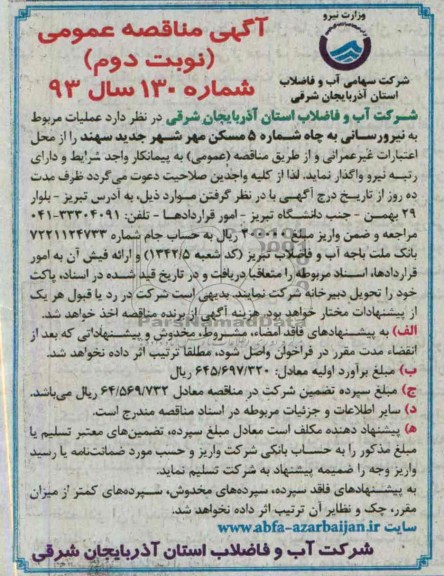 وزارت نیرو
شرکت سهامی آب و فاضلاب
استان آذربایجان شرقی
آگهی مناقصه عمومی
(نوبت دوم)
شماره ۱۳۰ سال ۹۳
شرکت آب و فاضلاب استان آذربایجان شرقی در نظر دارد عملیات مربوط
به نیرورسانی به چاه شماره ۵ مسکن مهر شهر جدید سهند را از محل
اعتبارات غیرعمرانی و از طریق مناقصه (عمومی) به پیمانکار واجد شرایط و دارای
رتبه نیرو واگذار نماید، لذا از کلیه واجدین صلاحیت دعوت می‌گردد ظرف مدت
ده روز از تاریخ درج آگهی با در نظر گرفتن موارد ذیل، به آدرس تبریز - بلوار
۲۹ بهمن - جنب دانشگاه تبریز - امور قراردادها - تلفن: ۳۳۳۰۴۰۹۱-۰۴۱
مراجعه و ضمن واریز مبلغ ریال به حساب جام شماره ۷۲۲۱۱۲۴۷۳۳
بانک ملت باجه آب و فاضلاب تبریز (کد شعبه ۱۳۴۲/۵) و ارائه فیش آن به امور
قراردادها، اسناد مربوطه را متعاقبا دریافت و در تاریخ قید شده در اسناد، پاکت
خود را تحویل دبیرخانه شرکت نمایند. بدیهی است شرکت در رد یا قبول هر یک
از پیشنهادات مختار خواهد بود. هزینه آگهی از برنده مناقصه اخذ خواهد شد.
الف) به پیشنهادهای فاقد امضاء، مشروط، مخدوش و پیشنهاداتی که بعد از
انقضاء مدت مقرر در فراخوان واصل شود، مطلقا ترتیب اثر داده نخواهد شد.
ب) مبلغ برآورد اولیه معادل: ۶۴۵/۶۹۷/۳۲۰ ریال
ج) مبلغ سپرده تضمین شرکت در مناقصه معادل ۶۴/۵۶۹/۷۳۲ ریال می‌باشد.
د) سایر اطلاعات و جزئیات مربوطه در اسناد مناقصه مندرج است.
ه) پیشنهاد دهنده مکلف است معادل مبلغ سپرده، تضمین‌های معتبر تسلیم یا
مبلغ مذکور را به حساب بانکی شرکت واریز و حسب مورد ضمانت‌نامه یا رسید
واریز وجه را ضمیمه پیشنهاد به شرکت تسلیم نماید.
به پیشنهادهای فاقد سپرده، سپرده‌های مخدوش، سپرده‌های کمتر از میزان
مقرر، چک و نظایر آن ترتیب اثر داده نخواهد شد.
سایت www.abfa-azarbaijan.ir
شرکت آب و فاضلاب استان آذربایجان شرقی
ParsNamadData